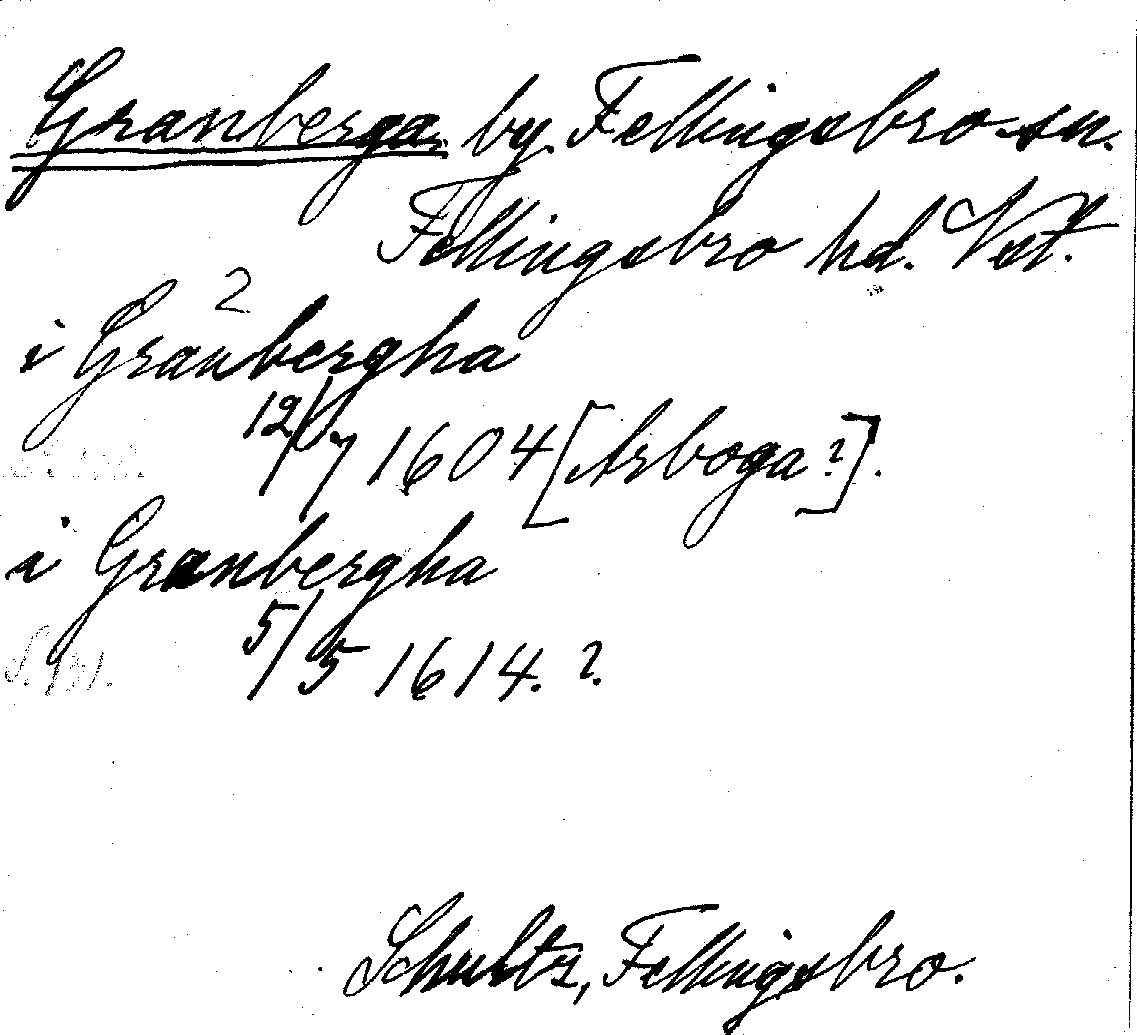 Granberga, by. Fellingsbro sn.
Fellingsbro hd. Vst.
2
i Granbergha
12/7 1604 [Arboga?].
i Granbergha
5/5 1614. ?.
Schultz, Fellingsbro.